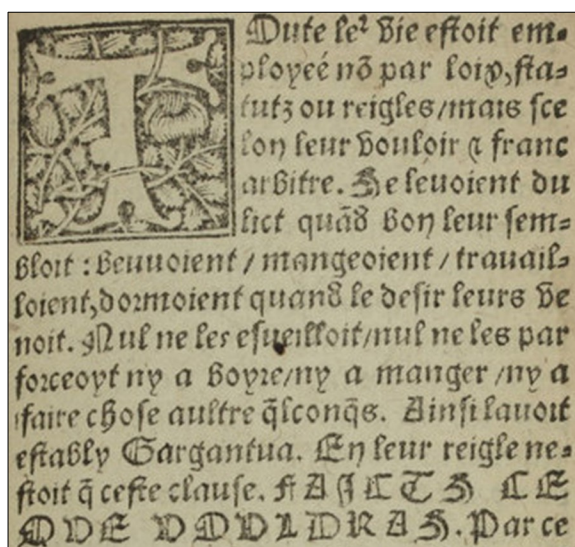 TOute leᷣ vie estoit em=
ployeé nõ par loix, sta-
tutz ou reigles/mais sce
lon leur vouloir ⁊ franc
arbitre. Se levoient du
lict quãd bon leur sem=
bloit : beuuoient / mangeoient / trauail=
loient, dormoient quand le desir leurs ve
noit. Nul ne les esueilloit/nul ne les par
forceoyt ny a boyre/ny a manger /ny a
faire chose aultre q̃lconq̃s. Ainsi lauoit
estably Gargantua. En leur reigle ne=
stoit q̃ ceste clause. FAICTZ CE
QVE VOVLDRAS. Par ce